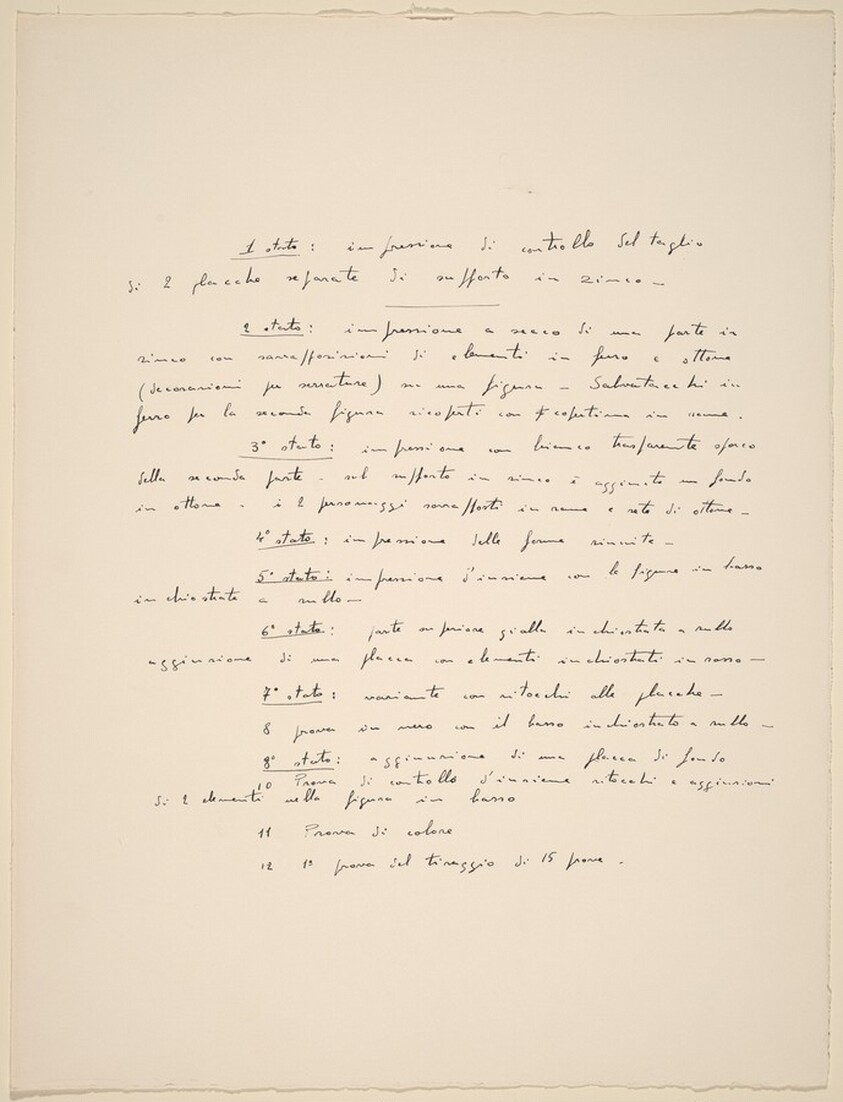 1 stato : impressione di controllo del taglio
di 2 placche separate di supporto in zinco —
2 stato : impressione a secco di una parte in
zinco con sovrapposizioni di elementi in ferro e ottone
(decorazioni per serrature) su una figura — Salvatacchi in
ferro per la seconda figura ricoperti con copertina in rame .
3° stato : impressione con bianco trasparente sporco
della seconda parte - sul supporto in zinco è aggiunto un fondo
in ottone - i 2 personaggi sovrapposti in rame e rete di ottone —
4° stato : impressione delle forme riunite —
5° stato : impressione d'insieme con le figure in basso
inchiostrate a rullo —
6° stato : parte superiore gialla inchiostrata a rullo
aggiunzione di una placca con elementi inchiostrati in rosso —
7° stato : variante con ritocchi alle placche —
8 prova in nero con il basso inchiostrato a rullo —
8° stato : aggiunzione di una placca di fondo
10 Prova di controllo d'insieme ritocchi e aggiunzioni
di 2 elementi nella figura in basso
11 Prova di colore
12 1ª prova del tiraggio di 15 prove .